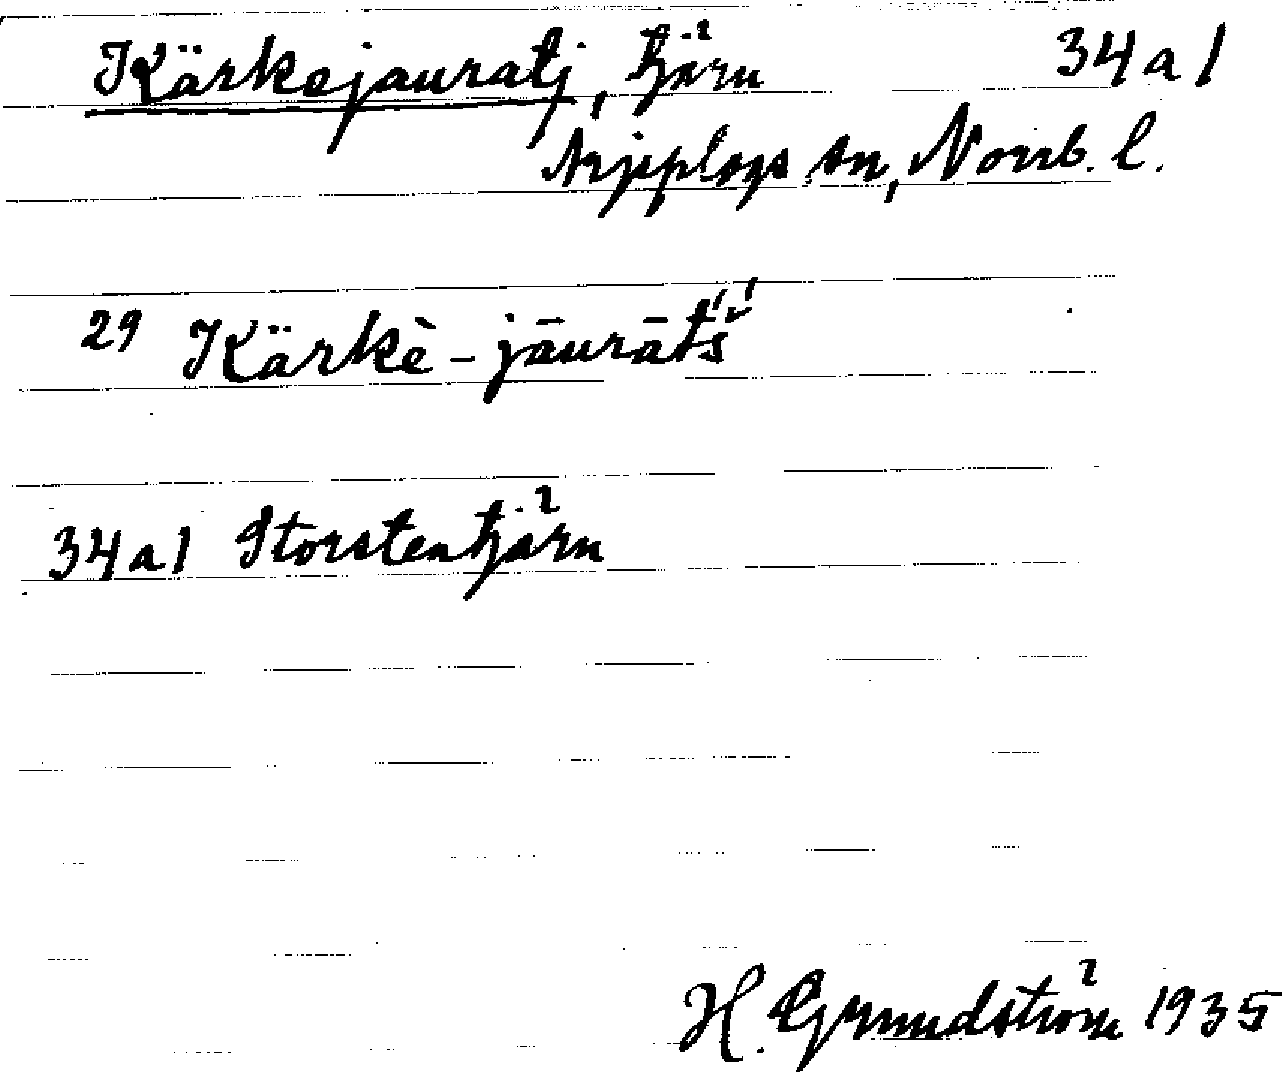 Kärkejauratj, tjärn 34a1
Arjeplogs sn, Norrb. l.
29 Kärkè-jāurāt́š́
34a1 Storstentjärn
H. Grundström 1935